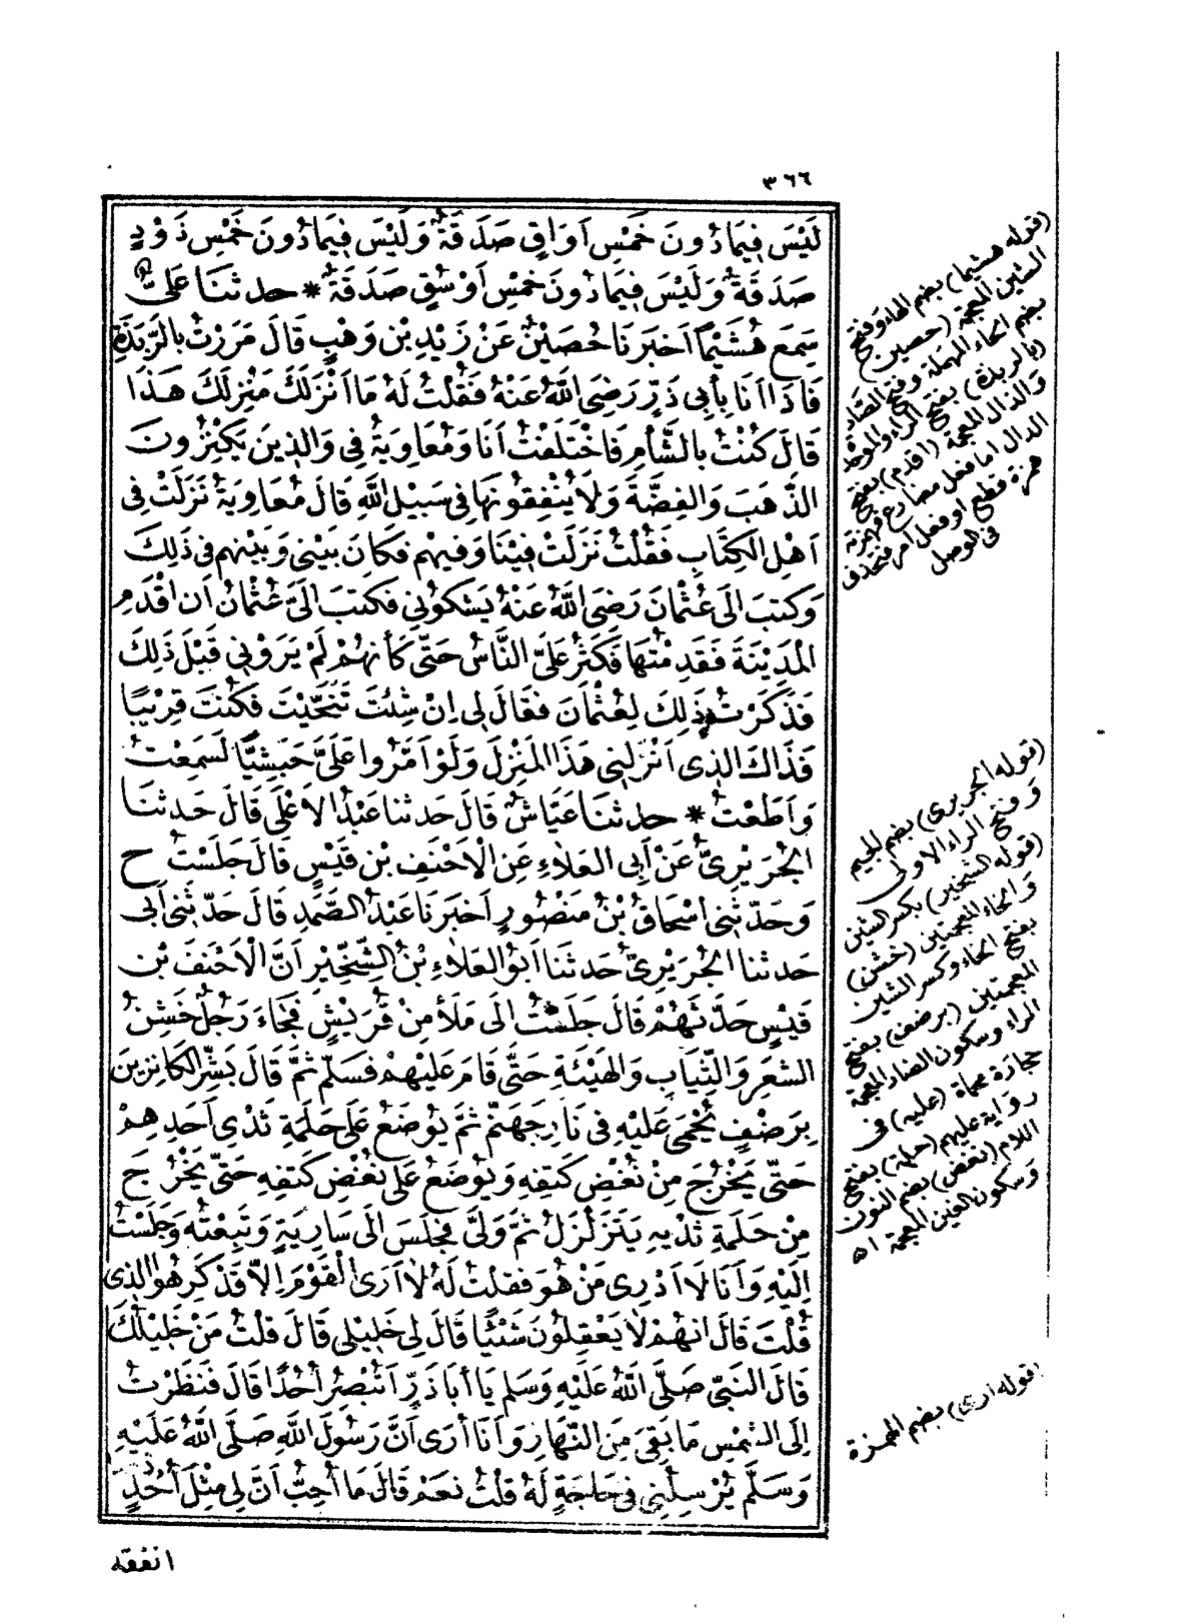 ٣٦٦
لَيْسَ فِيمَا دُونَ خَمْسِ اَوَاقٍ صَدَقَةٌ وَلَيْسَ فِيمَا دُونَ خَمْسِ ذَوْدٍ
صَدَقَةٌ وَلَيْسَ فِيمَا دُونَ خَمْسِ اَوْسُقٍ صَدَقَةٌ * حدثنَا عَلِيٌّ
سَمِعَ هُشَيْمًا اَخبَرَنَا حُصَيْنٌ عَنْ زَيْدِ بْنِ وَهْبٍ قَالَ مَرَرْتُ بالرَّبَذَةِ
فَاِذَا اَنَا بِأَبِي ذَرٍّ رَضِيَ اللّٰهُ عَنْهُ فَقُلْتُ لَهُ مَا اَنْزَلَكَ مَنْزِلَكَ هَذَا
قَالَ كُنْتُ بالشَّأْمِ فَاخْتَلَفْتُ اَنَا وَمُعَاوِيَةُ فِي وَالَّذِينَ يَكْنِزُونَ
الذَّهَبَ وَالفِضَّةَ وَلَا يُنْفِقُونَهَا فِي سَبِيْلِ اللّٰهِ قَالَ مُعَاوِيَةُ نَزَلَتْ فِي
اَهْلِ الكِتَابِ فَقُلْتُ نَزَلَتْ فِيْنَا وَفِيهِمْ فَكَانَ بَيْنِي وَبَيْنَهم فِي ذَلِكَ
وَكتبَ اِلَى عُثْمَانَ رَضِيَ اللّٰهُ عَنْهُ يَشكُونِي فكتبَ اِلَيَّ عُثْمَانُ اَن اقْدَمِ
المَدِيْنَةَ فَقَدِمْتُهَا فَكَثُرَ عَلَيَّ النَّاسُ حَتّى كَأَنهُمْ لَمْ يَرَوْنِي قَبْلَ ذَلِكَ
فَذَكَرْتُ ذَلِكَ لِعُثْمَانَ فقَالَ لِي اِنْ شِئْتَ تَنَحَّيْتَ فَكُنْتَ قَرِيْبًا
فَذَاكَ الَّذِي اَنْزَلَنِي هَذَا المَنْزِلَ وَلَوْ اَمَّرُوا عَلَيَّ حَبَشِيًّا لَسَمِعْتُ
وَاَطَعْتُ * حدثنَا عَيَّاشٌ قَالَ حَدثنا عَبْدُ الاَعْلَى قَالَ حَدثنَا
الجُرَيْرِيُّ عَنْ اَبِى العَلَاءِ عَنِ الْاَحْنَفِ بْنِ قَيْسٍ قَالَ جَلَسْتُ ح
وَحَدّثَنِي اِسْحَاقُ بْنُ مَنْصُورٍ اَخبَرَنَا عَبْدُ الصَّمَدِ قَالَ حَدّثَنِي اَبِي
حَدثنا الجُرَيْرِيُّ حَدثنَا اَبُو العَلَاءِ بْنُ الشِّخِّيْرِ اَنَّ الْاَحْنَفَ بْن
قَيْسٍ حَدّثَهُمْ قَالَ جَلَسْتُ اِلَى مَلَأٍ مِنْ قُرَيْشٍ فَجَاءَ رَجُلٌ خَشِنُ
الشعَرِ وَالثِّيَابِ وَالهَيْئَةِ حَتَّى قَامَ عَلَيْهِمْ فَسَلَّمَ ثُمَّ قَالَ بَشِّرِ الكَانِزِينَ
بِرَضْفٍ يُحْمَى عَلَيْهِ فِي نَارِ جَهَنَّمَ ثُمَّ يُوضَعُ عَلَى حَلَمَةِ ثَدْيِ اَحَدِهِمْ
حَتّى يَخْرُجَ مِنْ نُغْضِ كَتِفِهِ وَيُوضَعُ عَلَى نُغْضِ كَتِفِهِ حَتّى يَخْرُجَ
مِنْ حَلَمَةِ ثَدْيِهِ يَتَزَلْزَلُ ثُمَّ وَلَّى فَجَلَسَ اِلَى سَارِيَةٍ وَتَبِعْتُهُ وَجَلَسْتُ
اِلَيْهِ وَاَنَا لَا اَدْرِى مَنْ هُوَ فقلْتُ لَهُ لَا اَرَى الْقَوْمَ اِلّا قَدْ كَرِهُوا الَّذِى
قُلْتَ قَالَ انهُمْ لَا يَعْقِلُونَ شَيْئًا قَالَ لِي خَلِيْلِي قَالَ قلْتُ مَنْ خَلِيْلُكَ
قَالَ النَّبِيُّ صَلَّى اللّٰهُ عَلَيْهِ وَسَلم يَا أَبَا ذَرٍّ اَتُبْصِرُ أُحُدًا قَالَ فَنَظَرْتُ
اِلَى الشَّمْسِ مَا بَقِيَ مِنَ النَّهَارِ وَاَنَا أُرَى اَنَّ رَسُولَ اللّٰهِ صَلَّى اللّٰهُ عَلَيْهِ
وَسَلَّمَ يُرْسِلُنِي فِي حَاجَةٍ لَهُ قلْتُ نعَمْ قَالَ مَا اُحِبُّ اَنَّ لِي مِثْلَ اُحُدٍ
انفقه
(قوله هشيما) بضم الهاء وفتح
الشين المعجمة (حصين)
بضم الحاء المهملة وفتح الصّاد
(بالربذة) بفتح الراء والموحدة
والذال المعجمة (اقدم) بفتح
الدال اما فعل مضارع فهمزته
همزة قطع او فعل امر فتحذف
فى الوصل
(قوله الجريري) بضم الجيم
وفتح الراء الاولى
(قوله الشخير) بكسر الشين
والخاء المعجمتين (خشن)
بفتح الخاء وكسر الشين
المعجمتين (برضف) بفتح
الراء وسكون الضاد المعجمة
حجارة محماة (عليه) فى
رواية عليهم (حلمة) بفتح
اللام (نغض) بضم النون
وسكون الغين المعجمة اه
(قوله ارى) بضم الهمزة